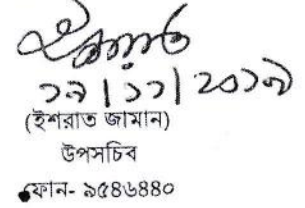 ১৯|১১|২০১৯
(ইশরাত জামান)
উপসচিব
ফোন- ৯৫৪৬৪৪০